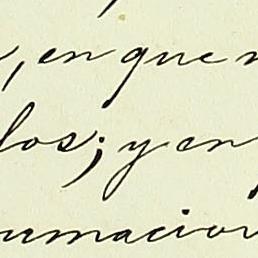 , en que
los; y en
umacion